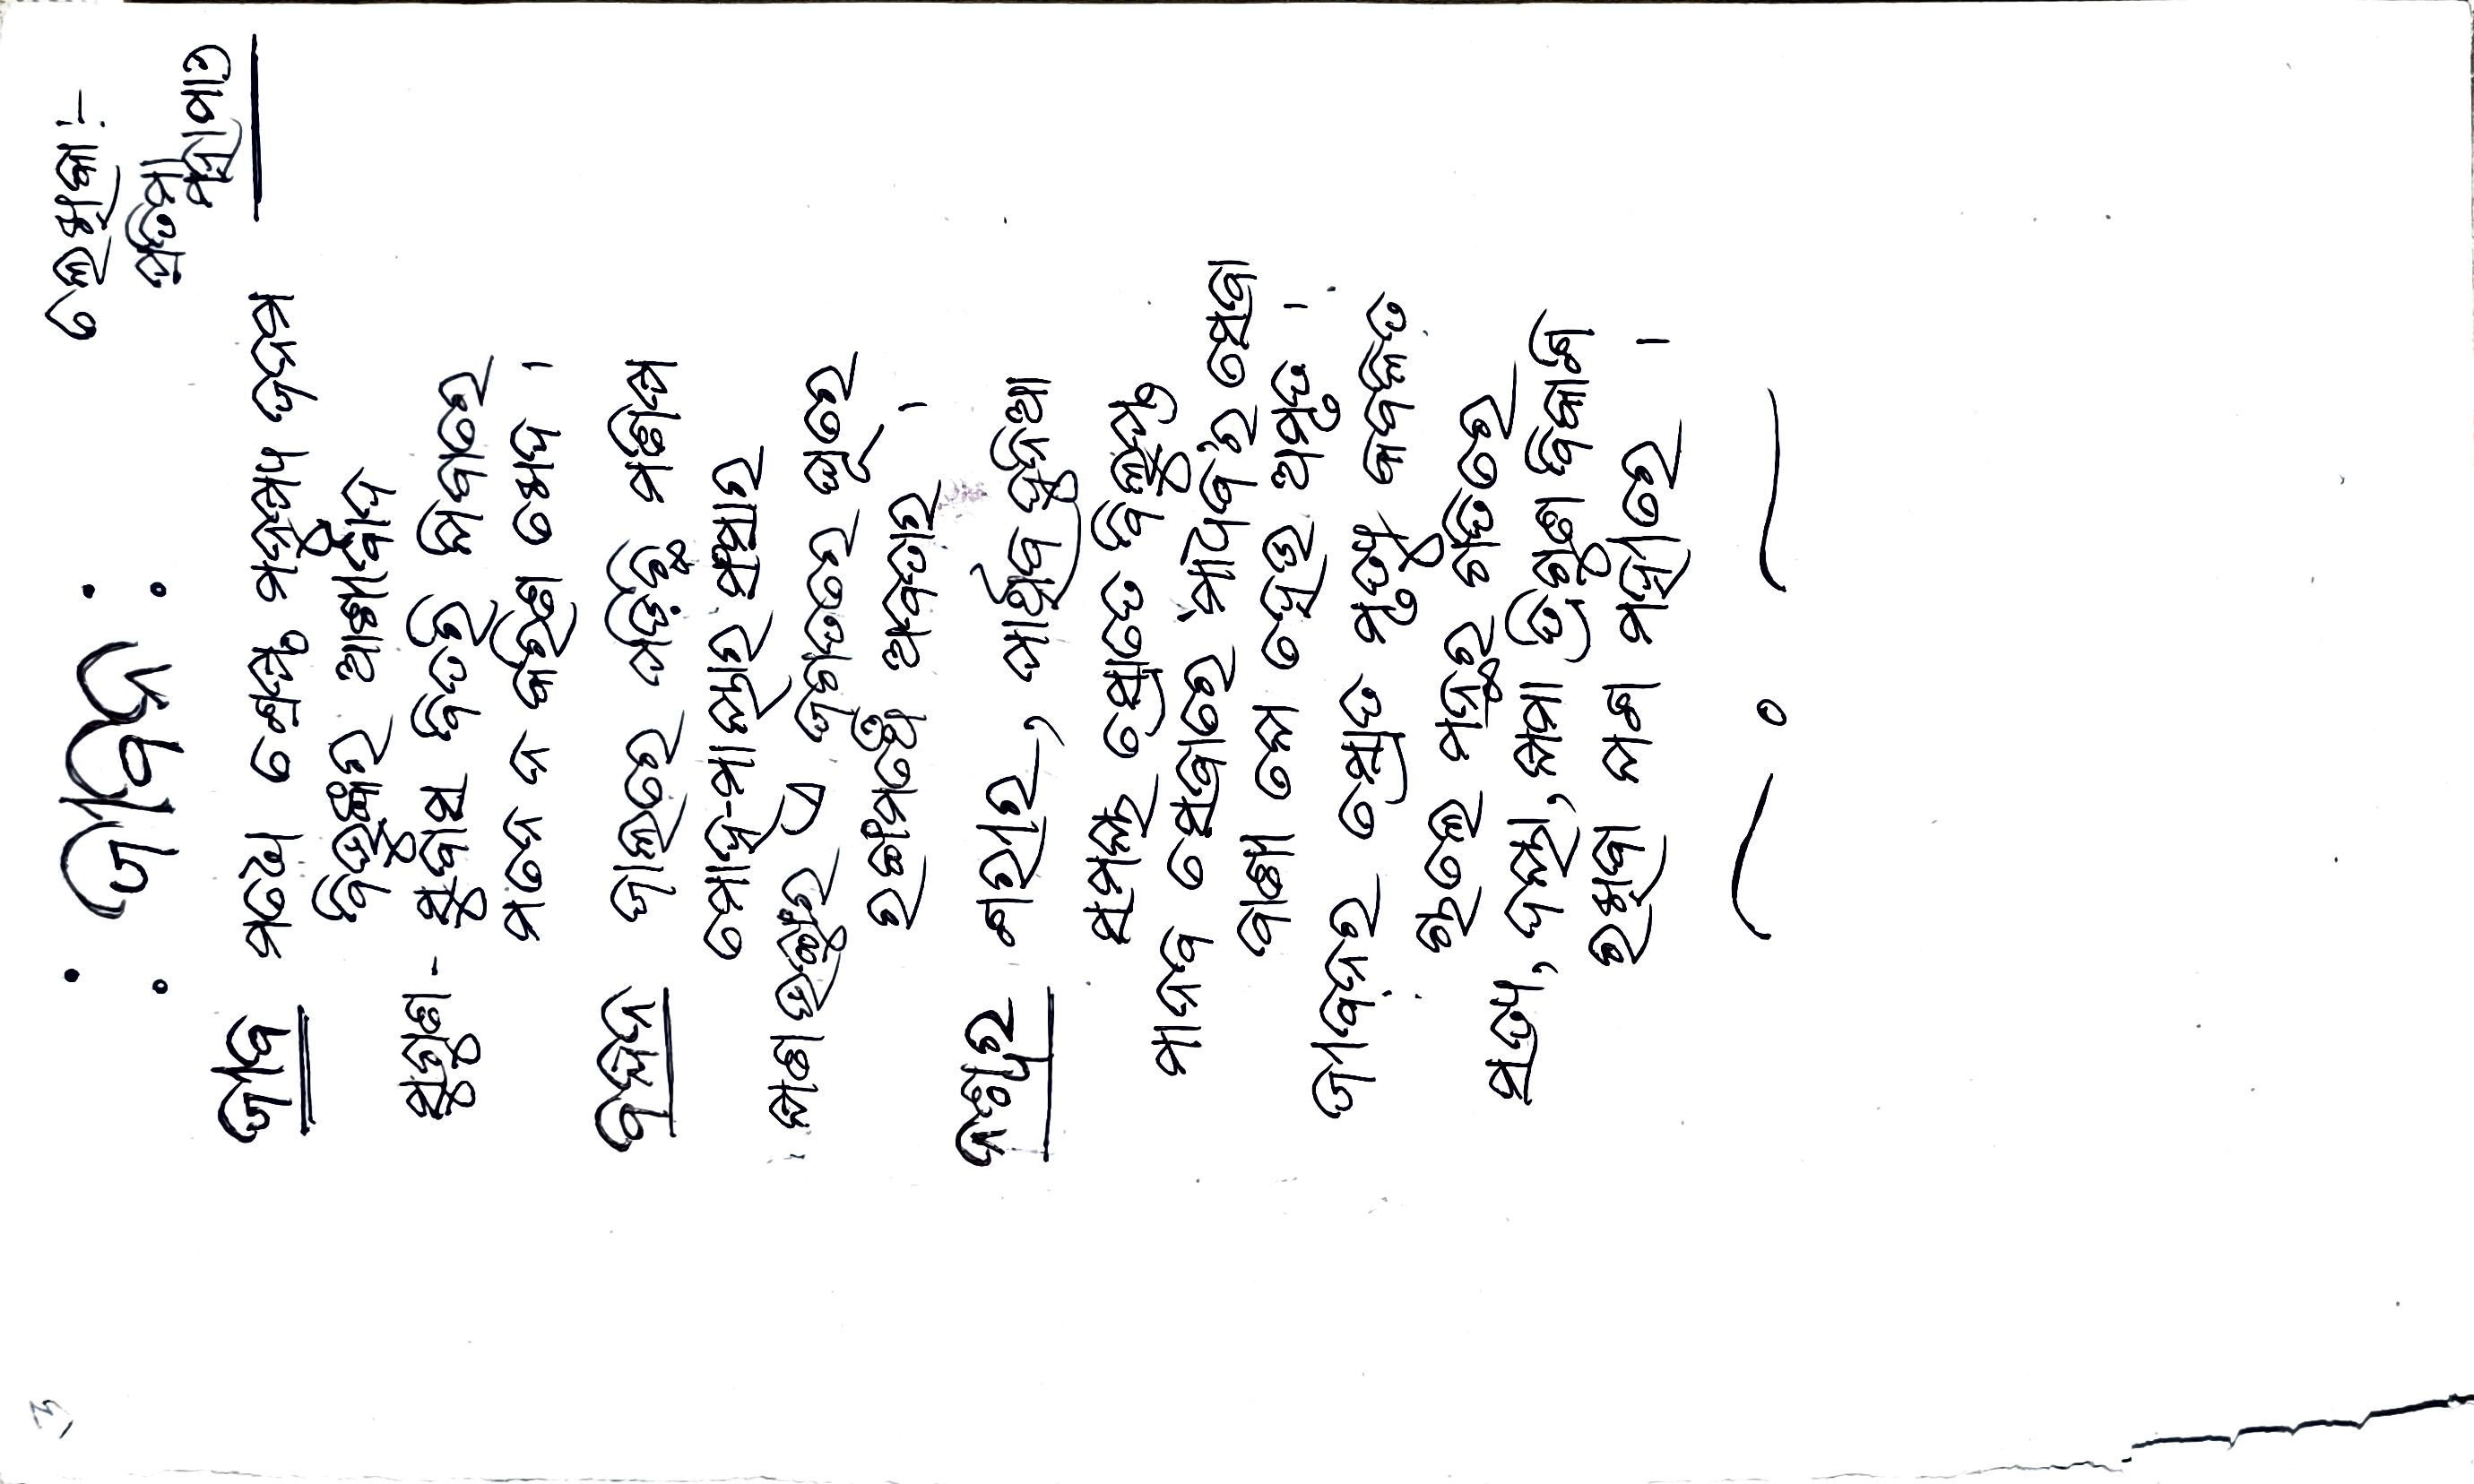 3
: ଜୀବନ :
ଲେଖିକା :-
ପ୍ରତିମା
ମହାପାତ୍ର
ଜୀବ ମଧ୍ୟେ ଶ୍ରେଷ୍ଠ ମନୁଷ୍ୟ ଜନମ
ବିଭୁଙ୍କର ଆଶୀର୍ବାଦ
ସୁଗୁଣ - ସୁବାସ ବିତରି ଯିବାରେ
ମନେ ନ କରିଣ ଖେଦ ।
ବନ୍ଧନ ଜାଲରେ ପଡ଼ିଛି ମଣିଷ
ମୋହ-ମାୟାର ସଂସାର
କ୍ଷଣଭଙ୍ଗୁର ଏ ଜଗତରେ ଘୂରେ
ରଙ୍ଗମଞ୍ଚେ ଅବତାର ।
ନଶ୍ୱର ଶରୀର, ପାର୍ଥିବ ଦୁନିଆ
ସମୟ ସ୍ରୋତେ ବିଲୁପ୍ତ
ମାନବ ସେବାରେ 'ମାଧବ'ର ସେବା
ବାଣୀ ସେ ହେଉ ଅମୃତ ।
ଜୀବନର ସ୍ରୋତ ମୃତ୍ୟୁ କବଳିତ
ଚାଲେ ମନ୍ଥର ଗତିରେ
ସତ୍ୟ, ଦୟା, କ୍ଷମା ତ୍ରିଗୁଣ ବିକାଶି
ରଖିବା ଯଶ ମହୀରେ ।